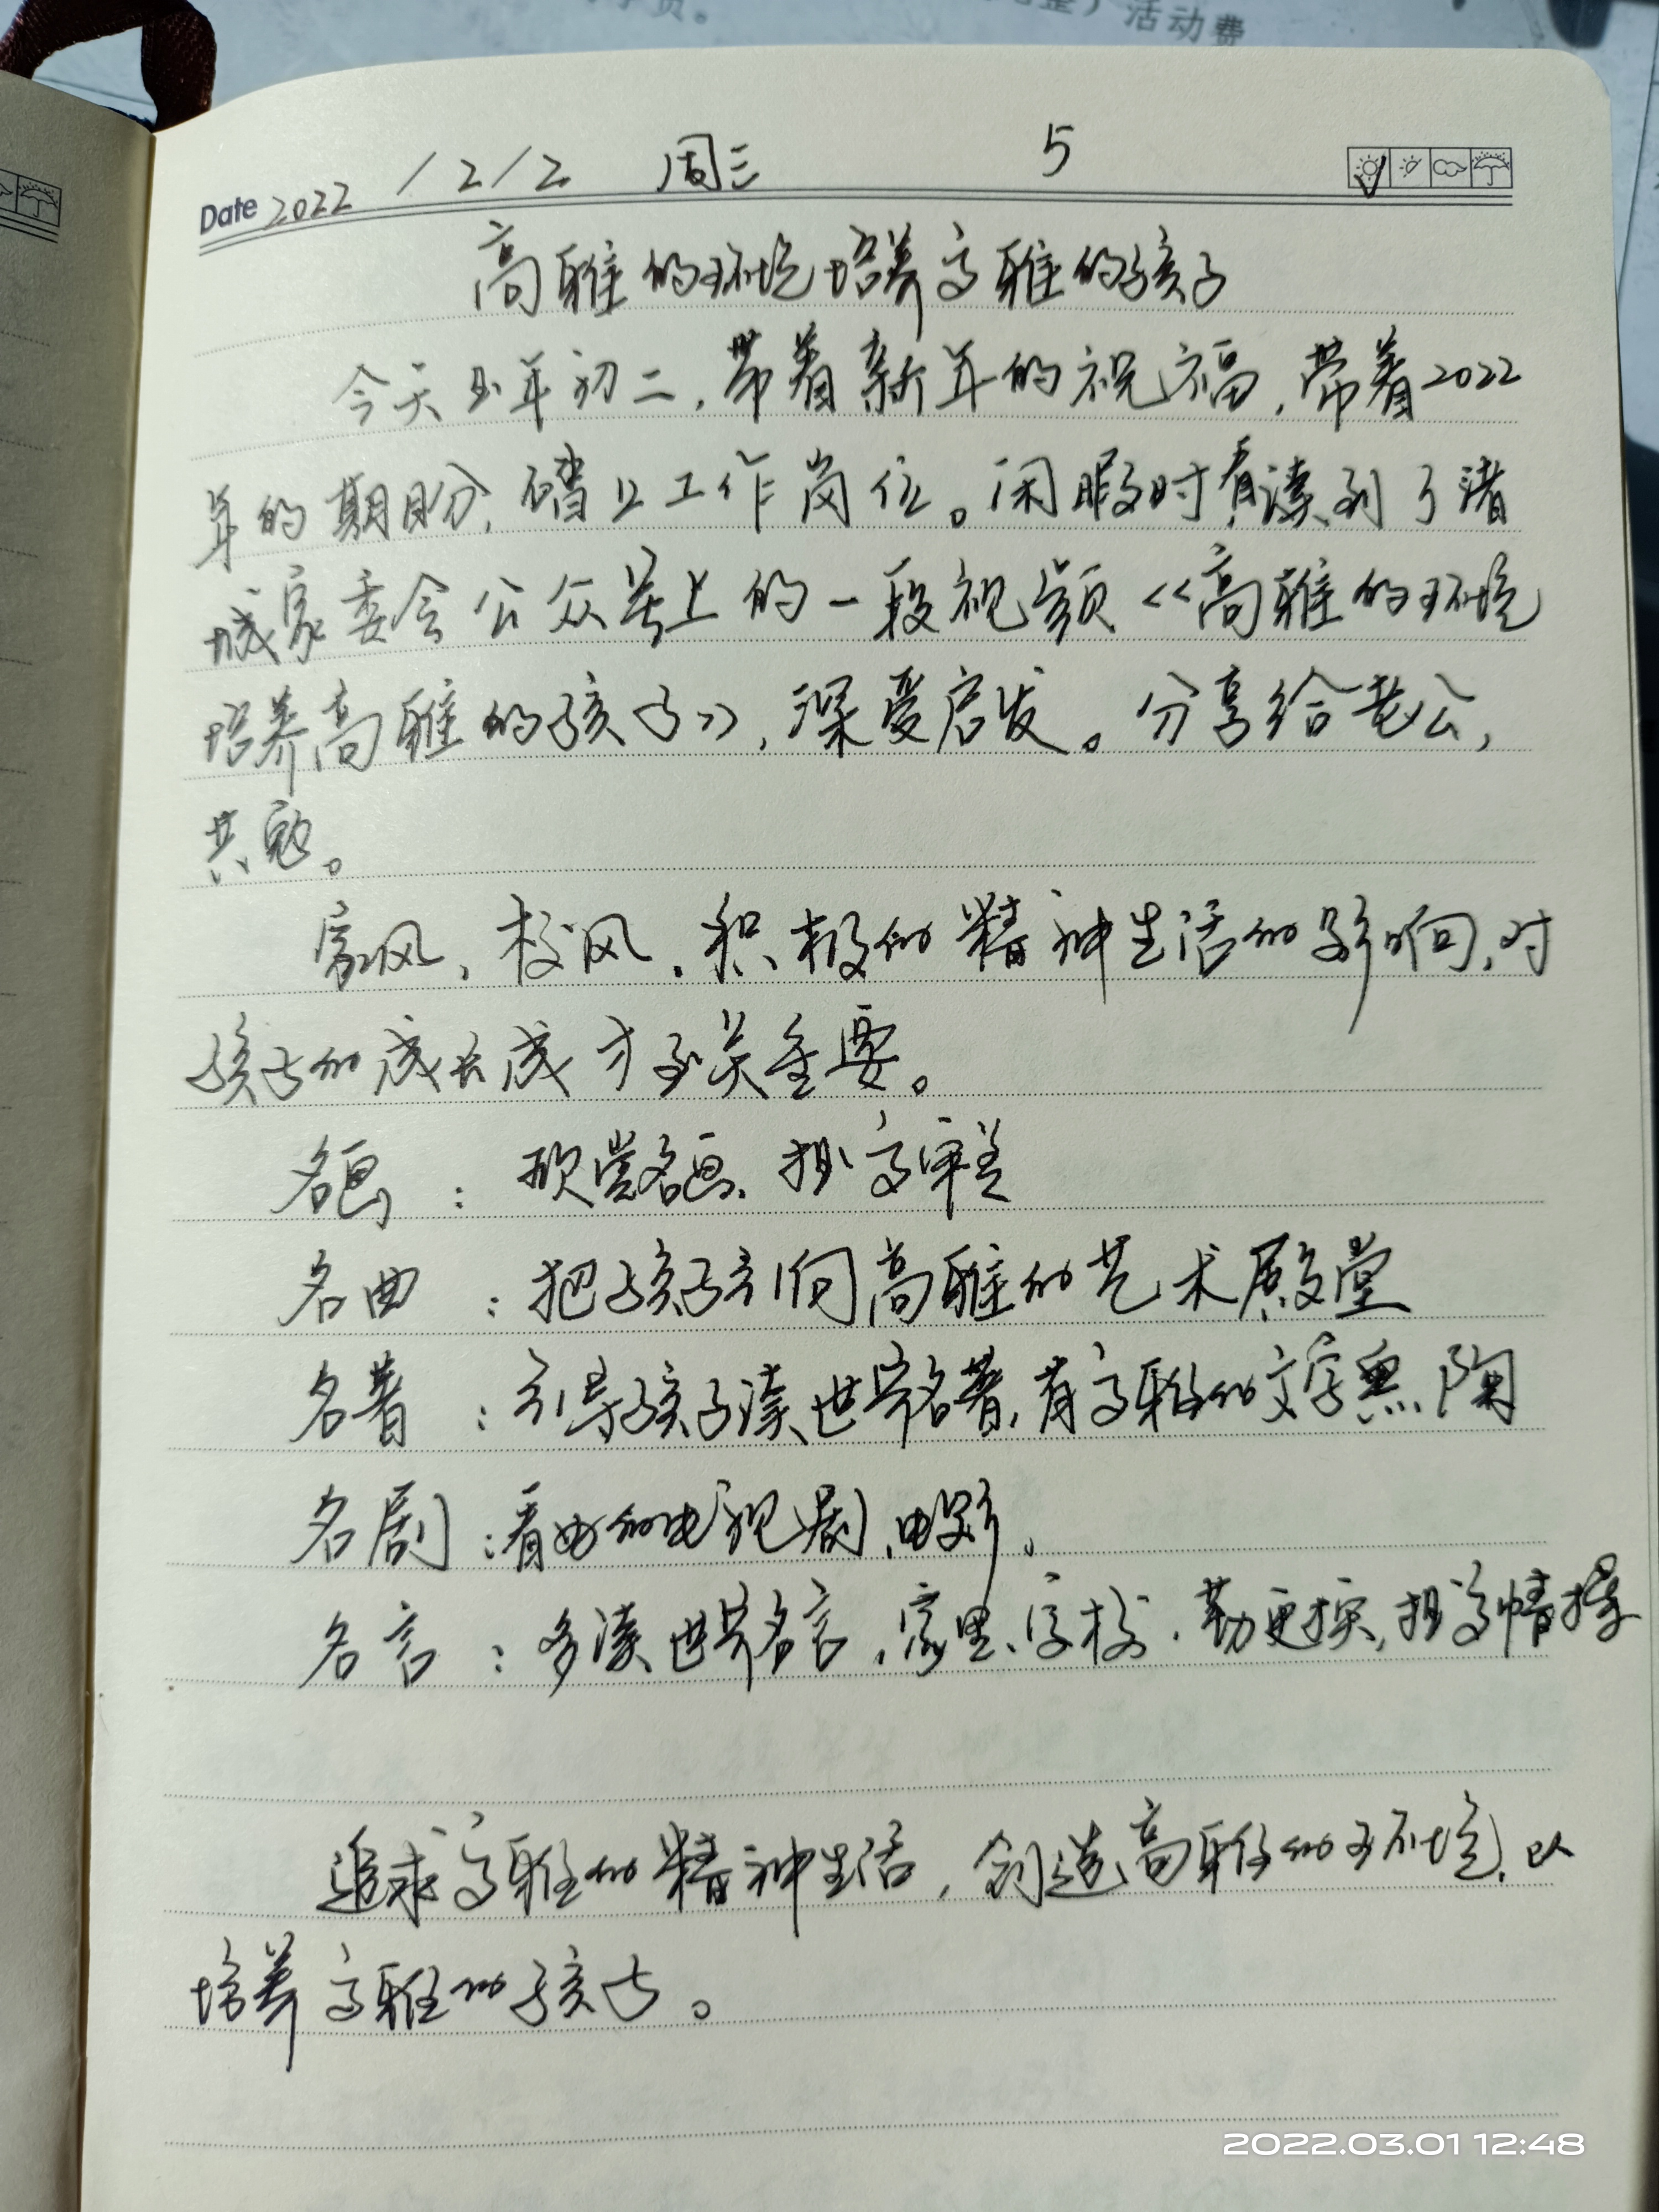 活动费
Date 2022 / 2 / 2 周三 5
高雅的环境培养高雅的孩子
今天是年初二，带着新年的祝福，带着2022
年的期盼，踏上工作岗位。闲暇时看读到了诸
城家委会公众号上的一段视频《高雅的环境
培养高雅的孩子》，深受启发。分享给老公，
共勉。
家风、校风、积极的精神生活的影响，对
孩子的成长成才至关重要。
名画：欣赏名画、提高审美
名曲：把孩子引向高雅的艺术殿堂
名著：引导孩子读世界名著，有高雅的文字熏陶
名剧：看好的电视剧、电影。
名言：多读世界名言，家里、学校，勤更换，提高情操
追求高雅的精神生活，创造高雅的环境，以
培养高雅的孩子。
2022.03.01 12:48